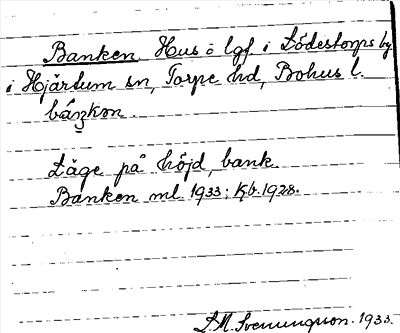 Banken Hus o lgf i Lödestorps by
i Hjärtum sn, Torpe hd, Bohus l.
báŋkon.
Läge på höjd, bank.
Banken ml. 1933; Kb. 1928.
L.M. Svenungson. 1933.